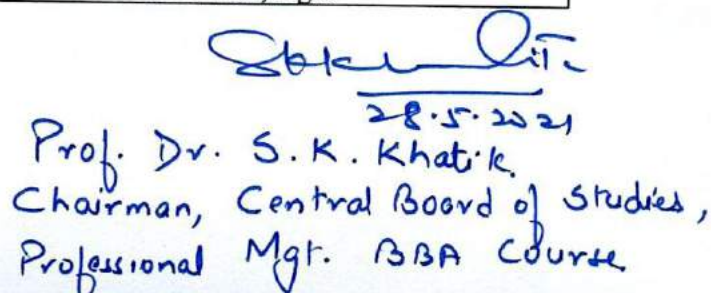 28.5.2021
Prof. Dr. S.K. Khatik.
Chairman, Central Board of Studies,
Professional Mgt. BBA Course